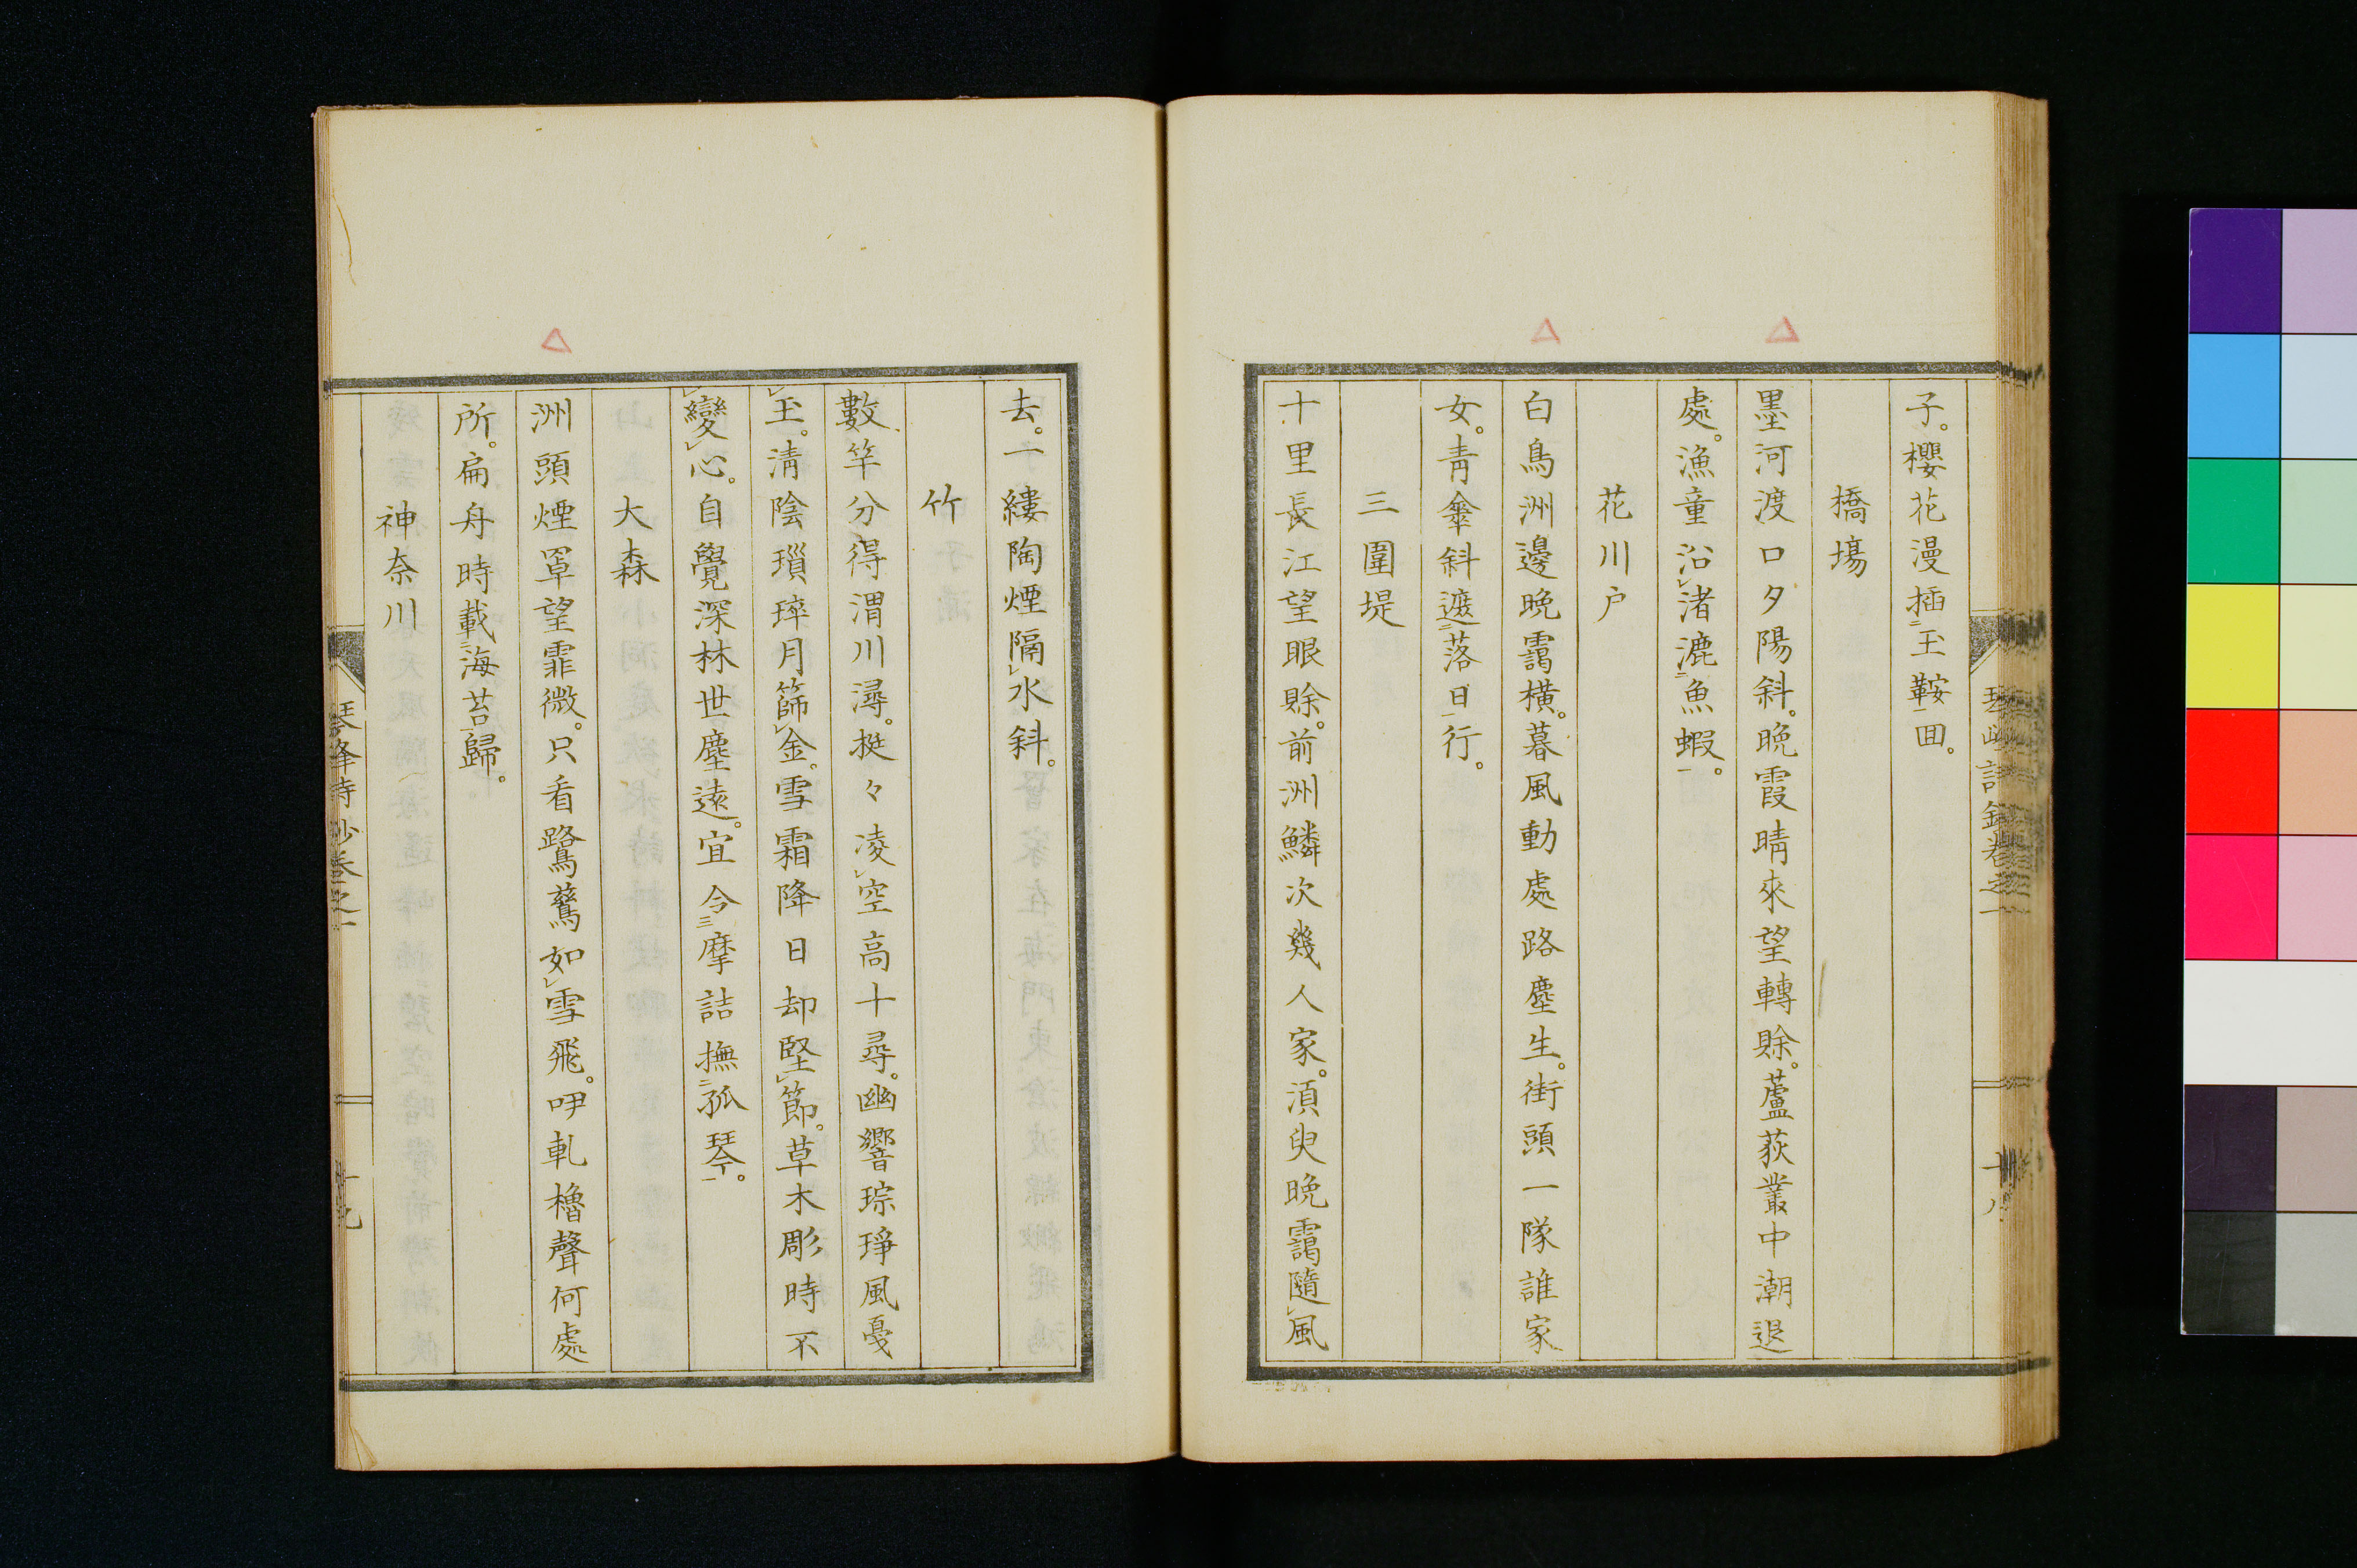 子。櫻花漫插二玉鞍一回。
橋塲
墨河渡口夕陽斜。晩霞晴來望轉賒。蘆荻叢中潮退
處。漁童沿レ渚漉二魚蝦一。
花川戸
白鳥洲邊晩靄橫。暮風動處路塵生。街頭一隊誰家
女。靑傘斜遮二落日一行。
三圍堤
十里長江望眼賒。前洲鱗次幾人家。須臾晩靄隨レ風
去。一縷陶煙隔レ水斜。
竹
數竿分得渭川潯。挺々凌レ空高十尋。幽響琮琤風戞
レ玉。淸陰瑣碎月篩レ金。雪霜降日却堅レ節。草木彫時不
レ變レ心。自覺深林世塵遠。宜令三摩詰撫二孤琴一。
大森
洲頭煙罩望霏微。只看鷺鷥如レ雪飛。咿軋櫓聲何處
所。扁舟時載二海苔一歸。
神奈川
琴峰詩鈔卷之一
十九